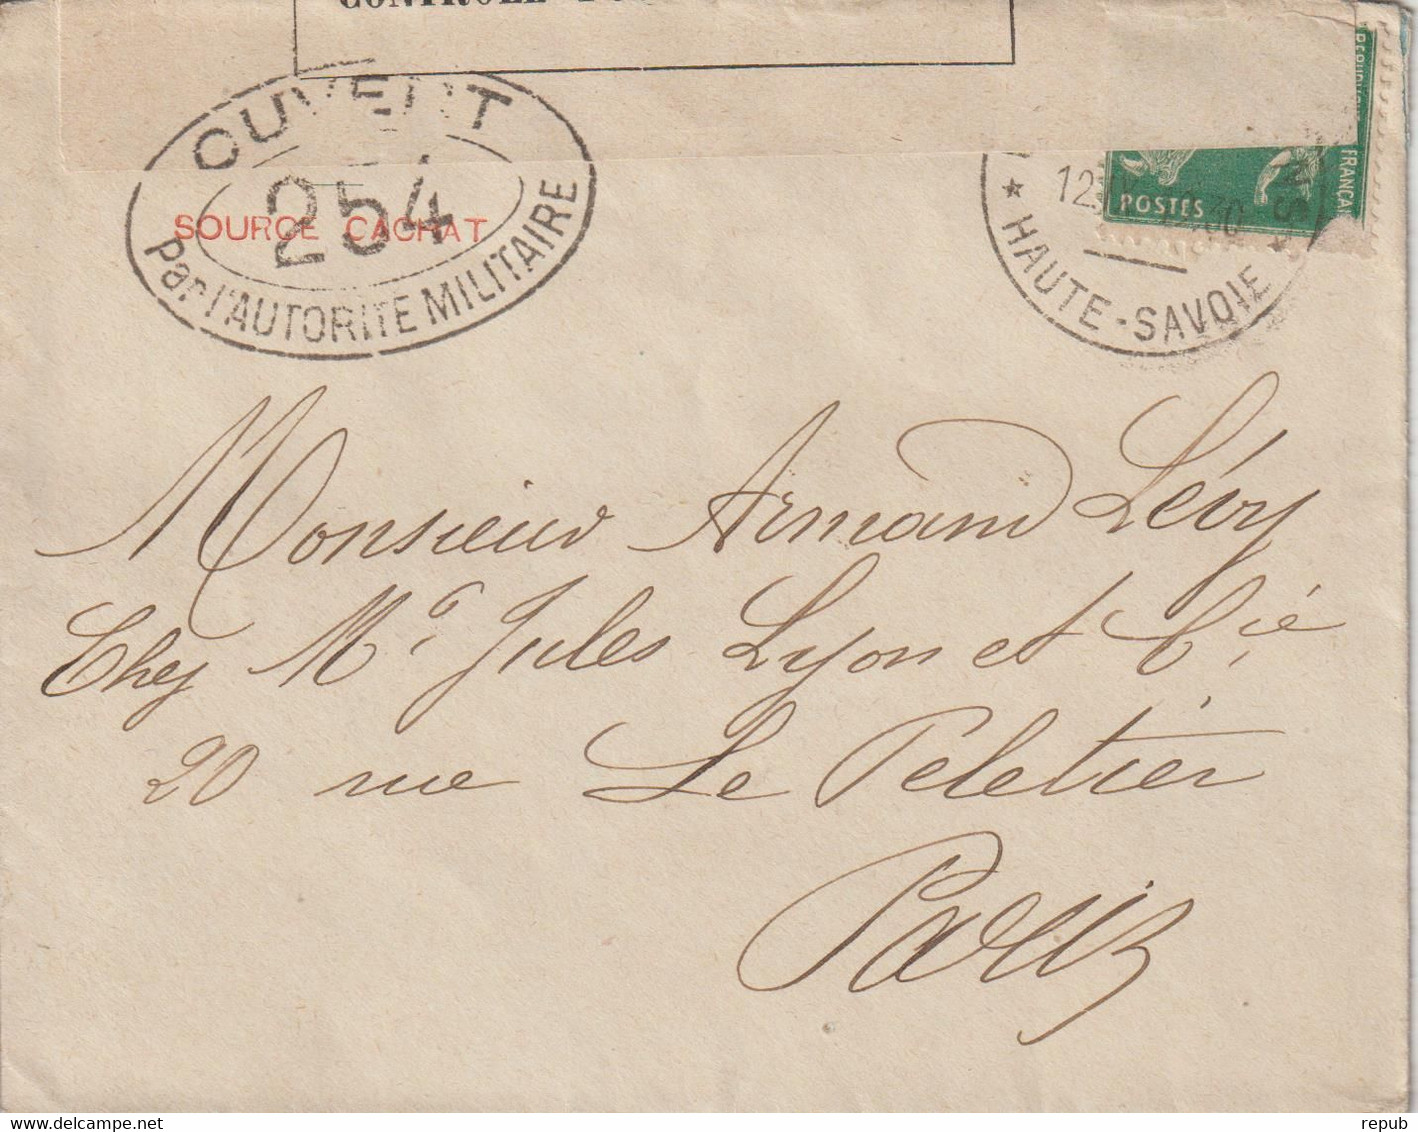 CONTROLE
OUVERT
254
Par l'AUTORITE MILITAIRE
SOURCE CACHAT
REPUBLIQUE
FRANÇAI
POSTES
12
★ HAUTE-SAVOIE ★
Monsieur Armand Lévy
Chez Mr Jules Lyon et Cie
20 rue Le Peletier
Paris
repub
delcampe.net